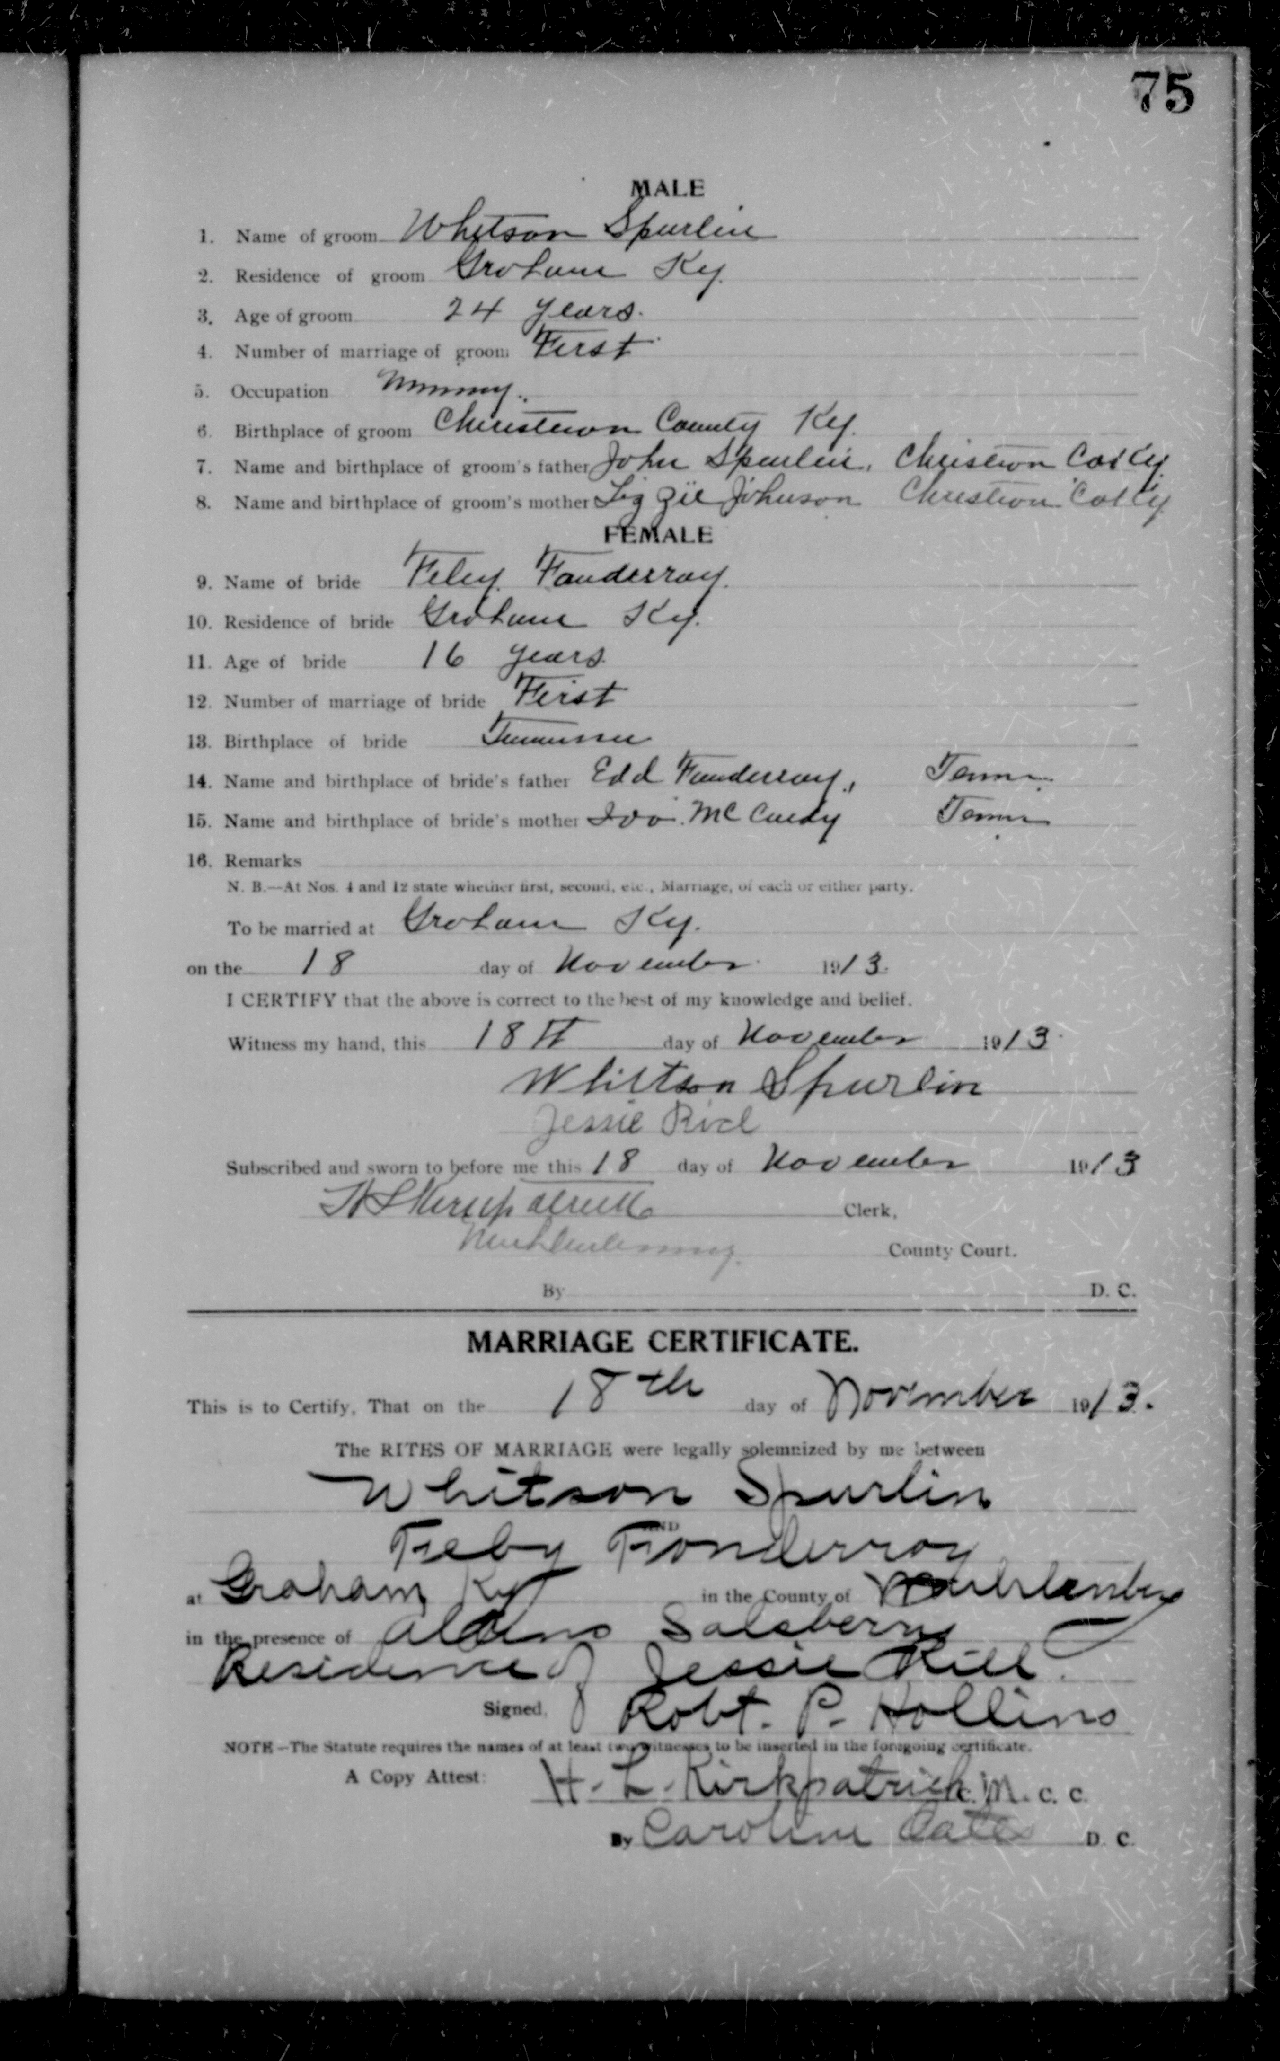 75
MALE
1. Name of groom Whitson Spurlin
2. Residence of groom Graham Ky.
3. Age of groom 24 years.
4. Number of marriage of groom First
5. Occupation Mining.
6. Birthplace of groom Christian County Ky.
7. Name and birthplace of groom's father John Spurlin, Christian Co Ky
8. Name and birthplace of groom's mother Lizzie Johnson Christian Co Ky
FEMALE
9. Name of bride Feby Fonderroy.
10. Residence of bride Graham Ky.
11. Age of bride 16 years
12. Number of marriage of bride First
13. Birthplace of bride Tennessee
14. Name and birthplace of bride's father Edd Fonderroy, Tenn.
15. Name and birthplace of bride's mother McCurdy Tenn
16. Remarks
N. B.—At Nos. 4 and 12 state whether first, second, etc., Marriage, of each or either party.
To be married at Graham Ky.
on the 18 day of November 1913.
I CERTIFY that the above is correct to the best of my knowledge and belief.
Witness my hand, this 18th day of November 1913
Whittson Spurlin
Jessie
Subscribed and sworn to before me this 18 day of November 1913
H L Kirkpatrick Clerk,
Muhlenberg County Court.
By D. C.
MARRIAGE CERTIFICATE.
This is to Certify, That on the 18th day of November 1913.
The RITES OF MARRIAGE were legally solemnized by me between
Whitson Spurlin
AND
Feby Fonderroy
at Graham Ky in the County of Muhlenberg
in the presence of Salsberry
Residence of Jessie
Signed, Robt. P. Hollins
NOTE—The Statute requires the names of at least two witnesses to be inserted in the foregoing certificate.
A Copy Attest: H. L. Kirkpatrick C. M. C. C.
By Caroline Oates D. C.